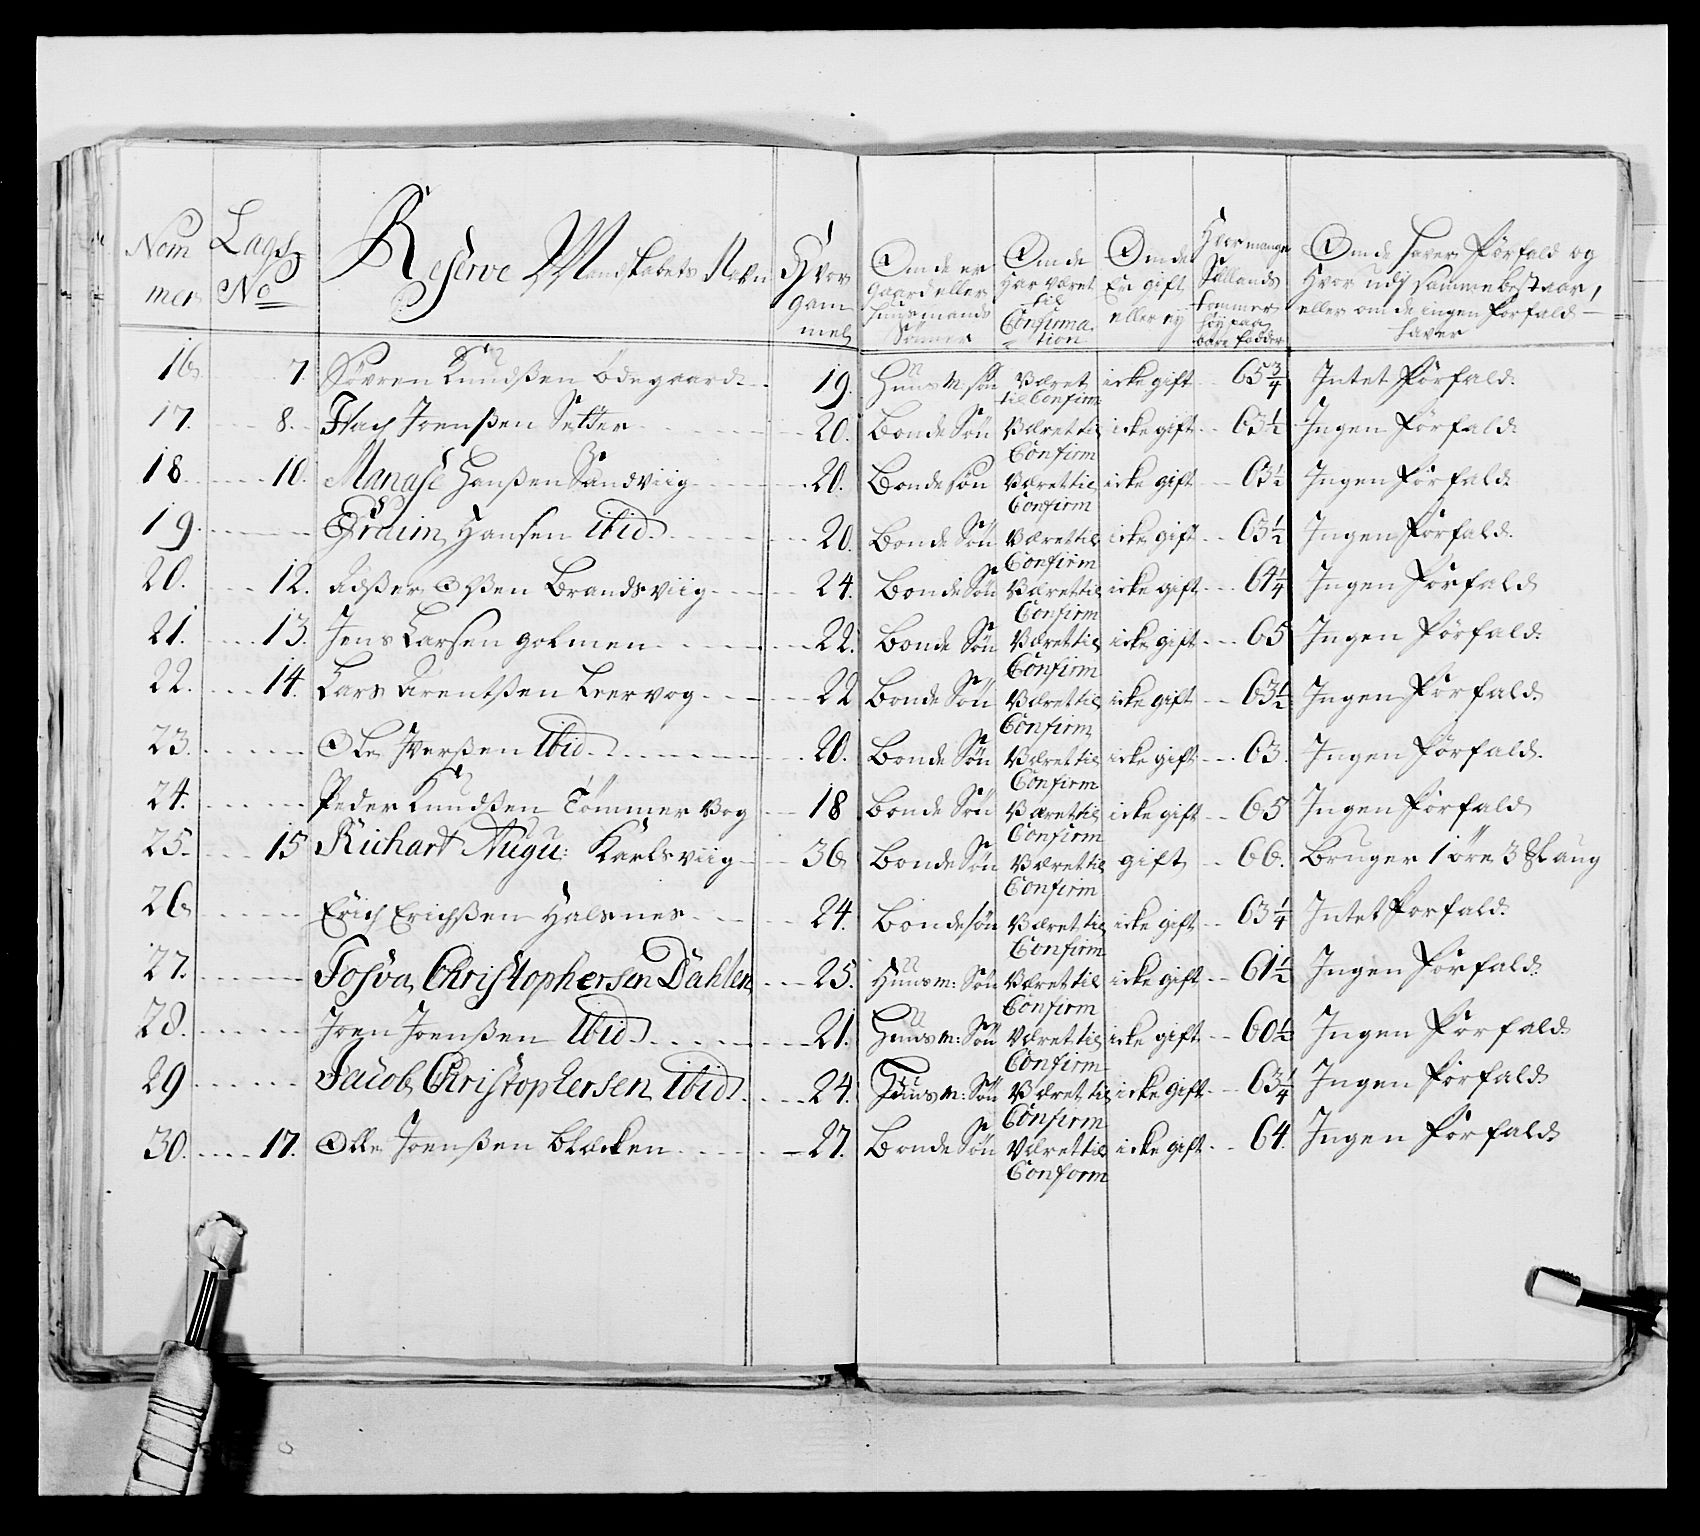 Nommer | Lags No | Reserve Mandskabets Nafn | Hvor gammel | Om de er gaard eller huusmands Sønner | Om de har været til Confirmation | Om de Er gift eller ey | Hvor mange Siellands tommer høy paa bare fødder | Om de haver Forfald og Hvor udj samme bestaar, eller om de ingen forfald haver
16. 7. Søvren Knudßen Ödegaard 19. Huus M: søn Været til Confirm icke gift 65 3/4 Intet Forfald.
17. 8. Isach Joenßen Setter 20. Bonde Søn Været til Confirm icke gift 63 1/2 Ingen Forfald.
18 10. Manase Hanßen Sandviig 20. Bondesøn Været til Confirm icke gift 63 1/2 Ingen Forfald.
19. Efraim Hansen ibid. 20. Bonde Søn Været til Confirm icke gift 63 1/2 Ingen Forfald.
20. 12. Adßer Olßen Brandsviig 24. Bonde Søn Været til Confirm icke gift 61 1/4 Ingen Forfald
21. 13. Jens Larsen golmen 22. Bonde Søn Været til Confirm icke gift 65 Ingen Forfald.
22. 14. Lars Arentßen Leervog 22 Bonde Søn Været til Confirm icke gift 63 1/2 Ingen Forfald
23. Ole Iverßen Ibid. 20. Bonde Søn Været til Confirm icke gift 63. Ingen Forfald.
24. Peder Knudßen Tömmervog 18 Bonde Søn Været til Confirm icke gift 65 Ingen Forfald
25. 15 Richart Augu: Karlsviig 36 Bonde Søn Været til Confirm gift 66. Bruger 1 öre 3 laug
26 Erich Erichßen Halsnes 24. Bondesøn Været til Confirm icke gift 63 1/4 Intet Forfald.
27. Josva Christophersen Dahlen 25. Huusm: Søn Været til Confirm icke gift 61 1/2 Ingen Forfald.
28. Joen Joenßen Ibid 21. Huusm: Søn Været til Confirm icke gift 60 1/2 Ingen Forfald
29 Jacob Christophersen ibid 24. Huusm: Søn Været til Confirm icke gift 63 1/4 Ingen Forfald
30. 17. Olle Joenßen Blæcken 27. Bonde Søn Været til Conform icke gift 64. Ingen Forfald